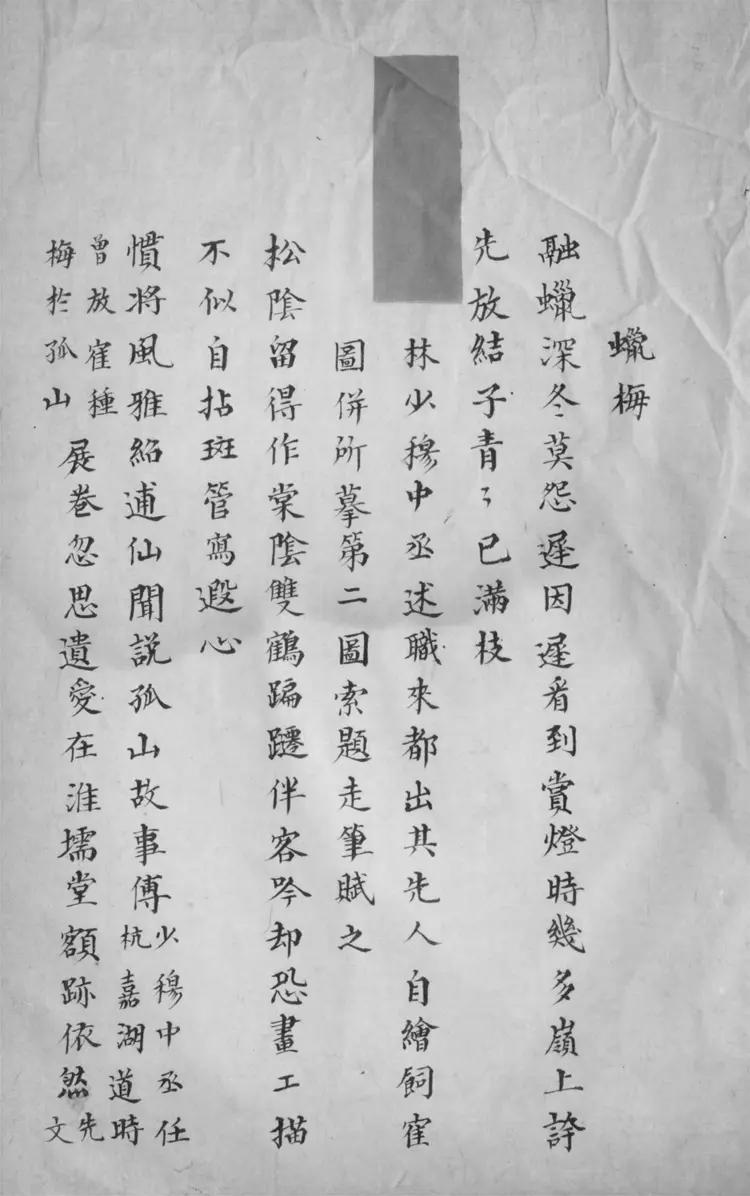 蠟梅
融蠟深冬莫怨遲因遲看到賞燈時幾多嶺上誇
先放結子青〻已滿枝
林少穆中丞述職來都出其先人自繪飼隺
圖併所摹第二圖索題走筆賦之
松陰留得作棠陰雙鶴蹁躚伴客吟却恐畫工描
不似自拈斑管寫遐心
慣將風雅紹逋仙聞說孤山故事傳
少穆中丞任
杭嘉湖道時
曾放隺種
梅扵孤山
展卷忽思遺愛在淮壖堂額跡依然
先
文